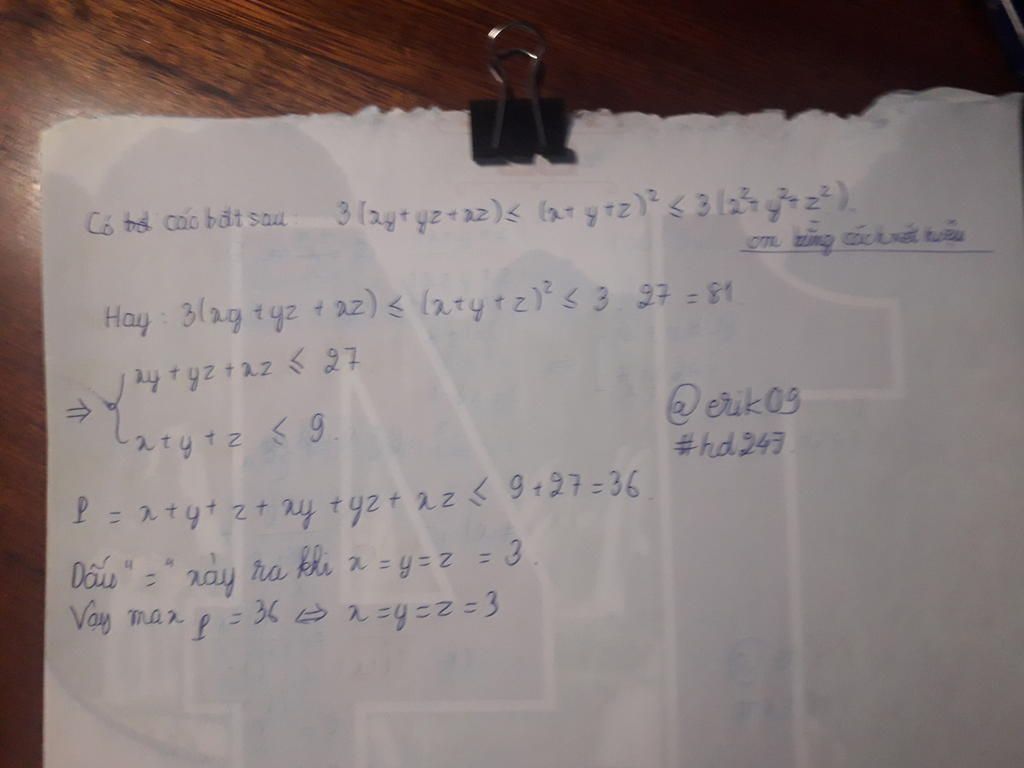 Có các bđt sau: 3(xy+yz+xz) ≤ (x+y+z)² ≤ 3(x²+y²+z²).
cm bằng cách xét hiệu
Hay: 3(xy+yz+xz) ≤ (x+y+z)² ≤ 3.27 = 81.
xy+yz+xz ≤ 27
⇒ {
x+y+z ≤ 9.
@erik09
#hd247.
P = x+y+z+xy+yz+xz ≤ 9+27=36.
Dấu "=" xảy ra khi x=y=z=3.
Vậy max P = 36 ⇔ x=y=z=3